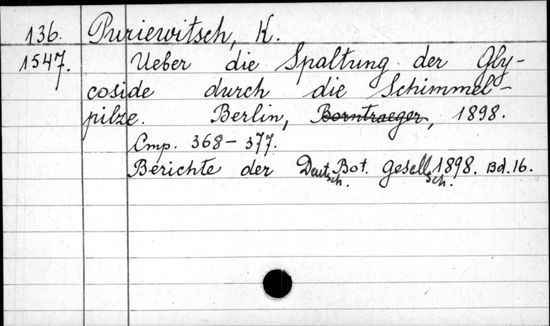 136. Puriewitsch, K.
1547. Ueber die Spaltung der Gly-
coside durch die Schimmel-
pilze. Berlin, Borntraeger, 1898.
Стр. 368-377.
Berichte der Deutsch. Bot. Gesellsch. 1898. Bd. 16.